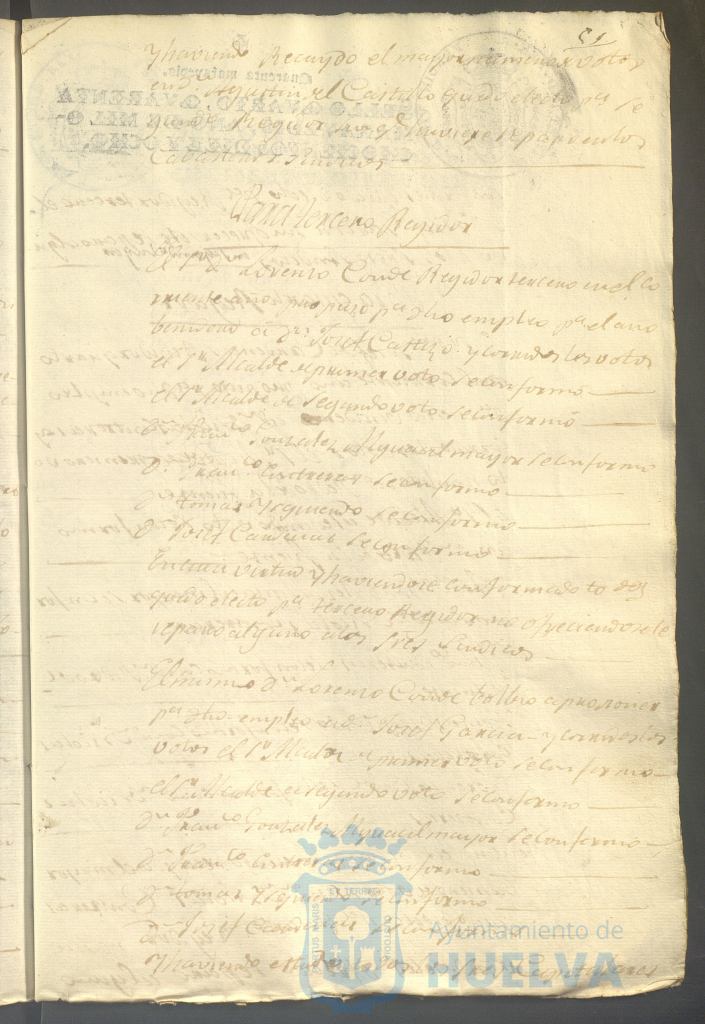 51
y haviendo Recaydo el mayor numero de votos
en dn. Agustin del Castillo quedo electo pa. se
gundo Regidor
Cavalleros Sindicos
Para tercero Regidor
El Sr. Dn. Lorenzo Conde Regidor tercero en el co
rriente año propuso pa. dho empleo pa. el año
benidero a Dn. Josef Castizo y corridos los votos
el Sr. Alcalde de primer voto se conformo
el Sr. Alcalde de Segundo voto se conformo
Dn. Franco. Gonzalez Alguacil mayor se conformo
Dn. Franco. Contreras se conformo
Dn. Tomas Yzquierdo se conformo
Dn. Josef Cardenas se conformo
En cuia virtud y haviendose conformado todos
quedo electo pa. tercero Regidor no ofreciendosele
reparo alguno a los Sres. Sindicos
El mismo Dn. Lorenzo Conde bolbio a proponer
pa. dho. empleo a dn. Josef Garcia y corridos los
votos el Sr. Alcalde de primer voto se conformo
el Sr. Alcalde de segundo voto se conformo
Dn. Franco. Gonzalez Alguacil mayor se conformo
Dn. Franco. Contreras se conformo
Dn. Tomas Yzquierdo se conformo
Dn. Josef Cardenas se conformo
y haviendo
Ayuntamiento de
HUELVA